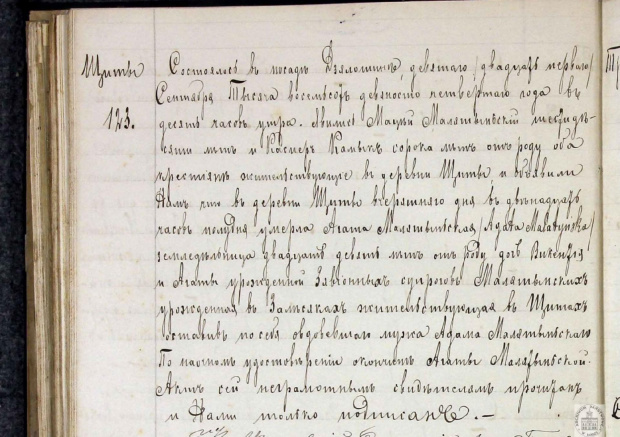 Щиты
123.
Состоялось въ посадѣ Дзялошинѣ, девятаго /двадцать перваго/
Сентября Тысяча восемьсотъ девяносто четвертаго года въ
десять часовъ утра. Явились Маѳей Малятыньскій
лѣтъ и Касперъ сорока лѣтъ отъ роду оба
крестьяне жительствующіе въ деревни Щиты и объявили
Намъ что въ деревни Щиты вчерашняго дня въ двѣнадцать
часовъ полудня умерла Агата Малятыньская /Agata
земледѣльница двадцать девять лѣтъ отъ роду дочь Викентія
и Агаты урожденной супруговъ
урожденная въ жительствующая въ Щитахъ
оставивъ по себѣ овдовѣвшаго мужа Адама Малятыньскаго
По наочномъ удостовѣреніи окончинѣ Агаты Малятыньской.
Актъ сей неграмотнымъ свидѣтелямъ прочитанъ
и Нами только подписанъ. —